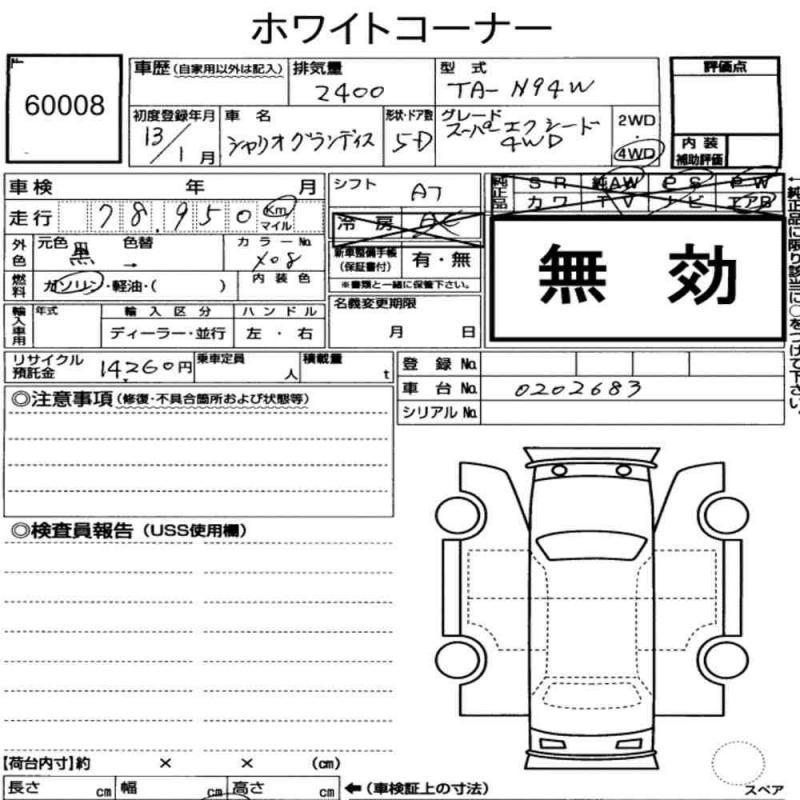 ホワイトコーナー
60008
車歴 (自家用以外は記入)
排気量
2400
型式
TA- N94W
評価点
初度登録年月
13/1月
車名
シャリオグランディス
形状・ドア数
5D
グレード
スーパーエクシード
4WD
2WD
・
4WD
内装
補助評価
車検 年 月
シフト AT
純正品
SR 純AW PS PW
カワ TV ナビ エアB
走行 78,950 Km
マイル
冷房 AC
外色
元色 黒 色替 →
カラーNo.
X08
新車整備手帳
(保証書付)
有・無
※書類と一緒に保管下さい。
無効
燃料
ガソリン・軽油・( )
内装色
名義変更期限
月 日
輸入車用
年式
輸入区分
ディーラー・並行
ハンドル
左・右
←純正品に限り該当に○をつけて下さい。
リサイクル
預託金
14,260円
乗車定員
人
積載量
t
登録No.
車台No. 0202683
シリアルNo.
◎注意事項 (修復・不具合箇所および状態等)
◎検査員報告 (USS使用欄)
【荷台内寸】約 × × (cm)
長さ cm 幅 cm 高さ cm
←(車検証上の寸法)
スペア